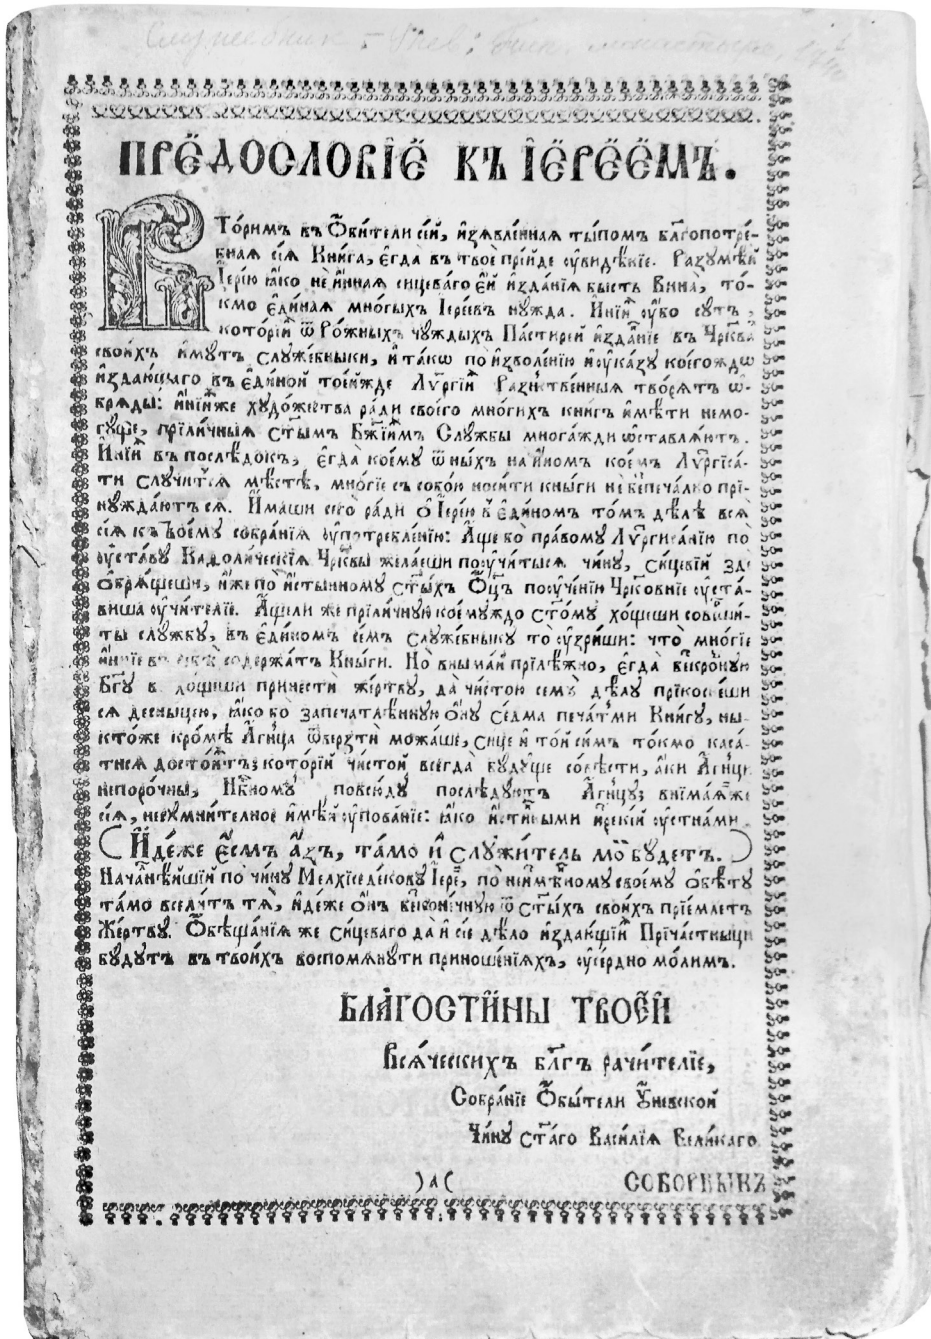 ПРЕДОСЛОВІЕ КЪ ІЕРЕЕМЪ.
Вто́римъ въ Ѻби́тели се́й, и҆зѧвле́ннаѧ ты́помъ бл҃гопотре́-
бнаѧ сїѧ̀ Кни́га, є҆гда̀ въ твоѐ прїи́де ᲂу҆ви́дѣнїе. Разꙋмѣ́й
І҆ере́ю ꙗ҆́ко не и҆́ннаѧ сицева́го є҆́й и҆зда́нїѧ бы́сть Вина̀, то́-
кмо є҆ди́наѧ мно́гыхъ І҆ере́євъ нꙋ́жда. И҆́нїи ᲂу҆́бо сꙋ́ть,
кото́рїи ѿ Ро́жныхъ чꙋ́ждыхъ Па́стирей и҆зда́нїе въ Цр҃ква́
свои́хъ и҆́мꙋтъ слꙋже́бныки, и҆ та́кѡ по и҆зволе́нїю и҆ ᲂу҆ка́зꙋ коего́ждѡ
и҆здаю́щаго въ є҆ди́ной то́ейжде Лѵ҃ргі́и Ра́знственныѧ творѧ́тъ ѡ҆-
брѧ́ды: и҆́нїи же хꙋдо́жества ра́ди своего̀ мно́гихъ кни́гъ и҆мѣ́ти немо-
гꙋ́ще, прїли́чныѧ ст҃ы́мъ Бж҃їимъ Слꙋ́жбы многа́жди ѡ҆ставлѧ́ютъ.
И҆́нїи въ послѣ́докъ, є҆гда̀ кое́мꙋ ѿ ны́хъ на и҆́номъ кое́мъ Лѵ҃ргїса́-
ти слꙋчи́тсѧ мѣ́стѣ, мно́гїе съ собо́ю носи́ти кны́ги не беспеча́лно прі-
нꙋжда́ютсѧ. И҆́маши сего̀ ра́ди ѽ І҆ере́ю в̾ є҆ди́номъ то́мъ дѣ́лѣ всѧ̀
сїѧ̀ къ твоемꙋ̀ собра́нїѧ ᲂу҆потребле́нїю: А҆́ще бо пра́вомꙋ Лѵ҃ргиса́нїю по
ᲂу҆ста́вꙋ Каѳоли́ческїѧ Цр҃кви жела́еши поᲂучи́тысѧ чи́нꙋ, си́цевїй здѐ
ѡ҆брѧ́щеши, и҆́же по и҆́стынномꙋ ст҃ы́хъ Ѻ҆ц҃ъ поᲂуче́нїю Цр҃ко́внїе ᲂу҆ста́-
виша ᲂу҆чи́телїе. А҆́щели же прїли́чнꙋю коемꙋ́ждо ст҃о́мꙋ хо́щеши соверши́-
ты слꙋ́жбꙋ, въ є҆ди́номъ се́мъ слꙋже́бныкꙋ то̀ ᲂу҆́зриши: что̀ мно́гїе
и҆́ннїе въ себѣ̀ содержа́тъ Кны́ги. Но̀ внима́й прїлѣ́жно, є҆гда̀ безкро́внꙋю
Бг҃ꙋ хо́щеши принестѝ же́ртвꙋ, да̀ чи́стою семꙋ̀ дѣ́лꙋ прїкоснеши
сѧ десны́цею, ꙗ҆́ко бо̀ запечатлѣ́ннꙋю ѻ҆́нꙋ се́дма печа́тми Кни́гꙋ, ны-
кто́же кро́мѣ А҆́гнца ѿверзꙋ́ти можа́ше, си́це и҆ то́й си́мъ то́кмо каса́-
тисѧ досто́итъ; кото́рїй чи́стой всегда̀ бꙋ́дꙋще со́вѣсти, а҆́ки А҆́гнци
непоро́чны, Нб҃номꙋ повсю́дꙋ послѣ́дꙋютъ А҆́гнцꙋ; внїма́ѧ же
сїѧ̀, несꙋмни́телное и҆мѣ́й ᲂу҆пова́нїе: ꙗ҆́ко и҆́стинными и҆́рекїй ᲂу҆стна́ми
(И҆дѣ́же є҆́смъ а҆́зъ, та́мо и҆ слꙋжи́тель мо́й бꙋ́детъ.)
Нача́лнѣйшїй по чи́нꙋ Мелхїседе́ковꙋ І҆ере́й, по неи҆змѣ́нномꙋ своемꙋ̀ ѻ҆бѣ́тꙋ
та́мо всели́тъ тѧ̀, и҆дѣ́же ѻ҆́нъ безконе́чнꙋю ѿ ст҃ы́хъ свои́хъ прїе́млетъ
Же́ртвꙋ. Ѻ҆бѣща́нїѧ же си́цеваго да̀ и҆ сїѐ дѣ́ло и҆зда́вшїи Прїча́стныци
бꙋ́дꙋтъ въ твои́хъ воспомѧнꙋ́ти приноше́нїѧхъ, ᲂу҆се́рдно мо́лимъ.
БЛАГОСТЫ́НЫ ТВОЕ́Й
Всѧ́ческихъ бл҃гъ рачи́телїе,
Собра́нїе Ѻ҆бы́тели Ꙋ҆не́вской
Чи́нꙋ ст҃а́го Васи́лїѧ Вели́каго
)а(
СОБОРНЫКЪ